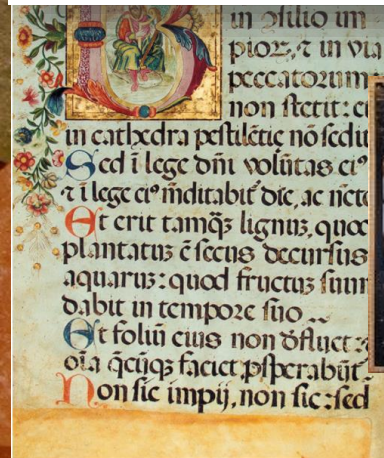 in ꝯsilio im
pioꝝ, ⁊ in via
peccatorum
non stetit: et
in cathedra pestilētie nō sedit
Sed ī lege dn̄i volūtas ei⁹
⁊ ī lege ei⁹ mditabit̉ die, ac nocte
Et erit tamqȝ lignuȝ, quod
plantatuȝ ē secus decursus
aquaruȝ: quod fructuȝ suum
dabit in tempore suo
Et foliū eius non dꝰfluet:
oīa q̄cūqȝ faciet ꝓsperabūt̉
Non sic impij, non sic: sed